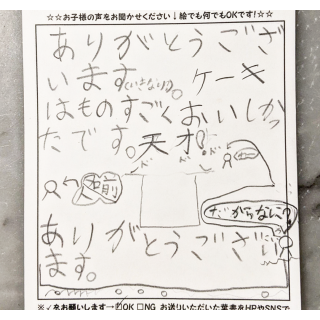 ☆☆お子様の声をお聞かせください↓絵でも何でもOKです!☆☆
ありがとうござ
います(いきなり?)。ケーキ
はものすごくおいしかっ
たです。天才!
名前
だからなに?
ありがとうござい
ます。
※✓をお願いします→☑OK □NG お送りいただいた葉書をHPやSNSで